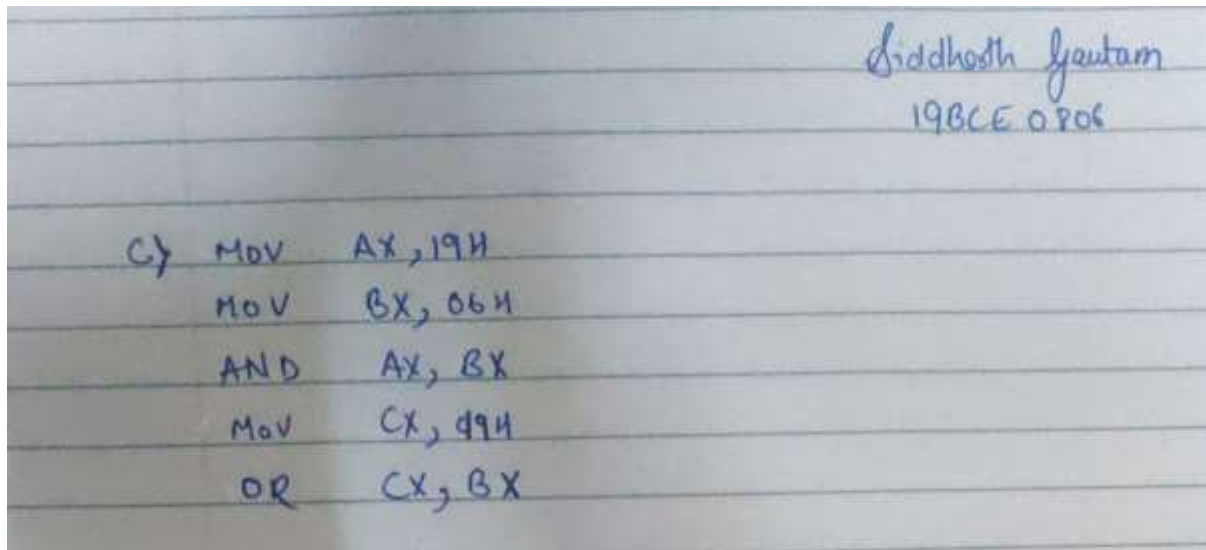 Siddhesth Gautam
19BCE 0806
C) MOV AX, 19H
MOV BX, 06H
AND AX, BX
MOV CX, 19H
OR CX, BX